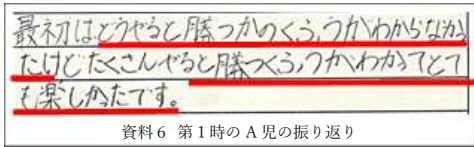 最初はどうやると勝つかのくふうがわからなかっ
たけどたくさんやると勝つくふうがわかってとて
も楽しかったです。
資料6 第1時のA児の振り返り